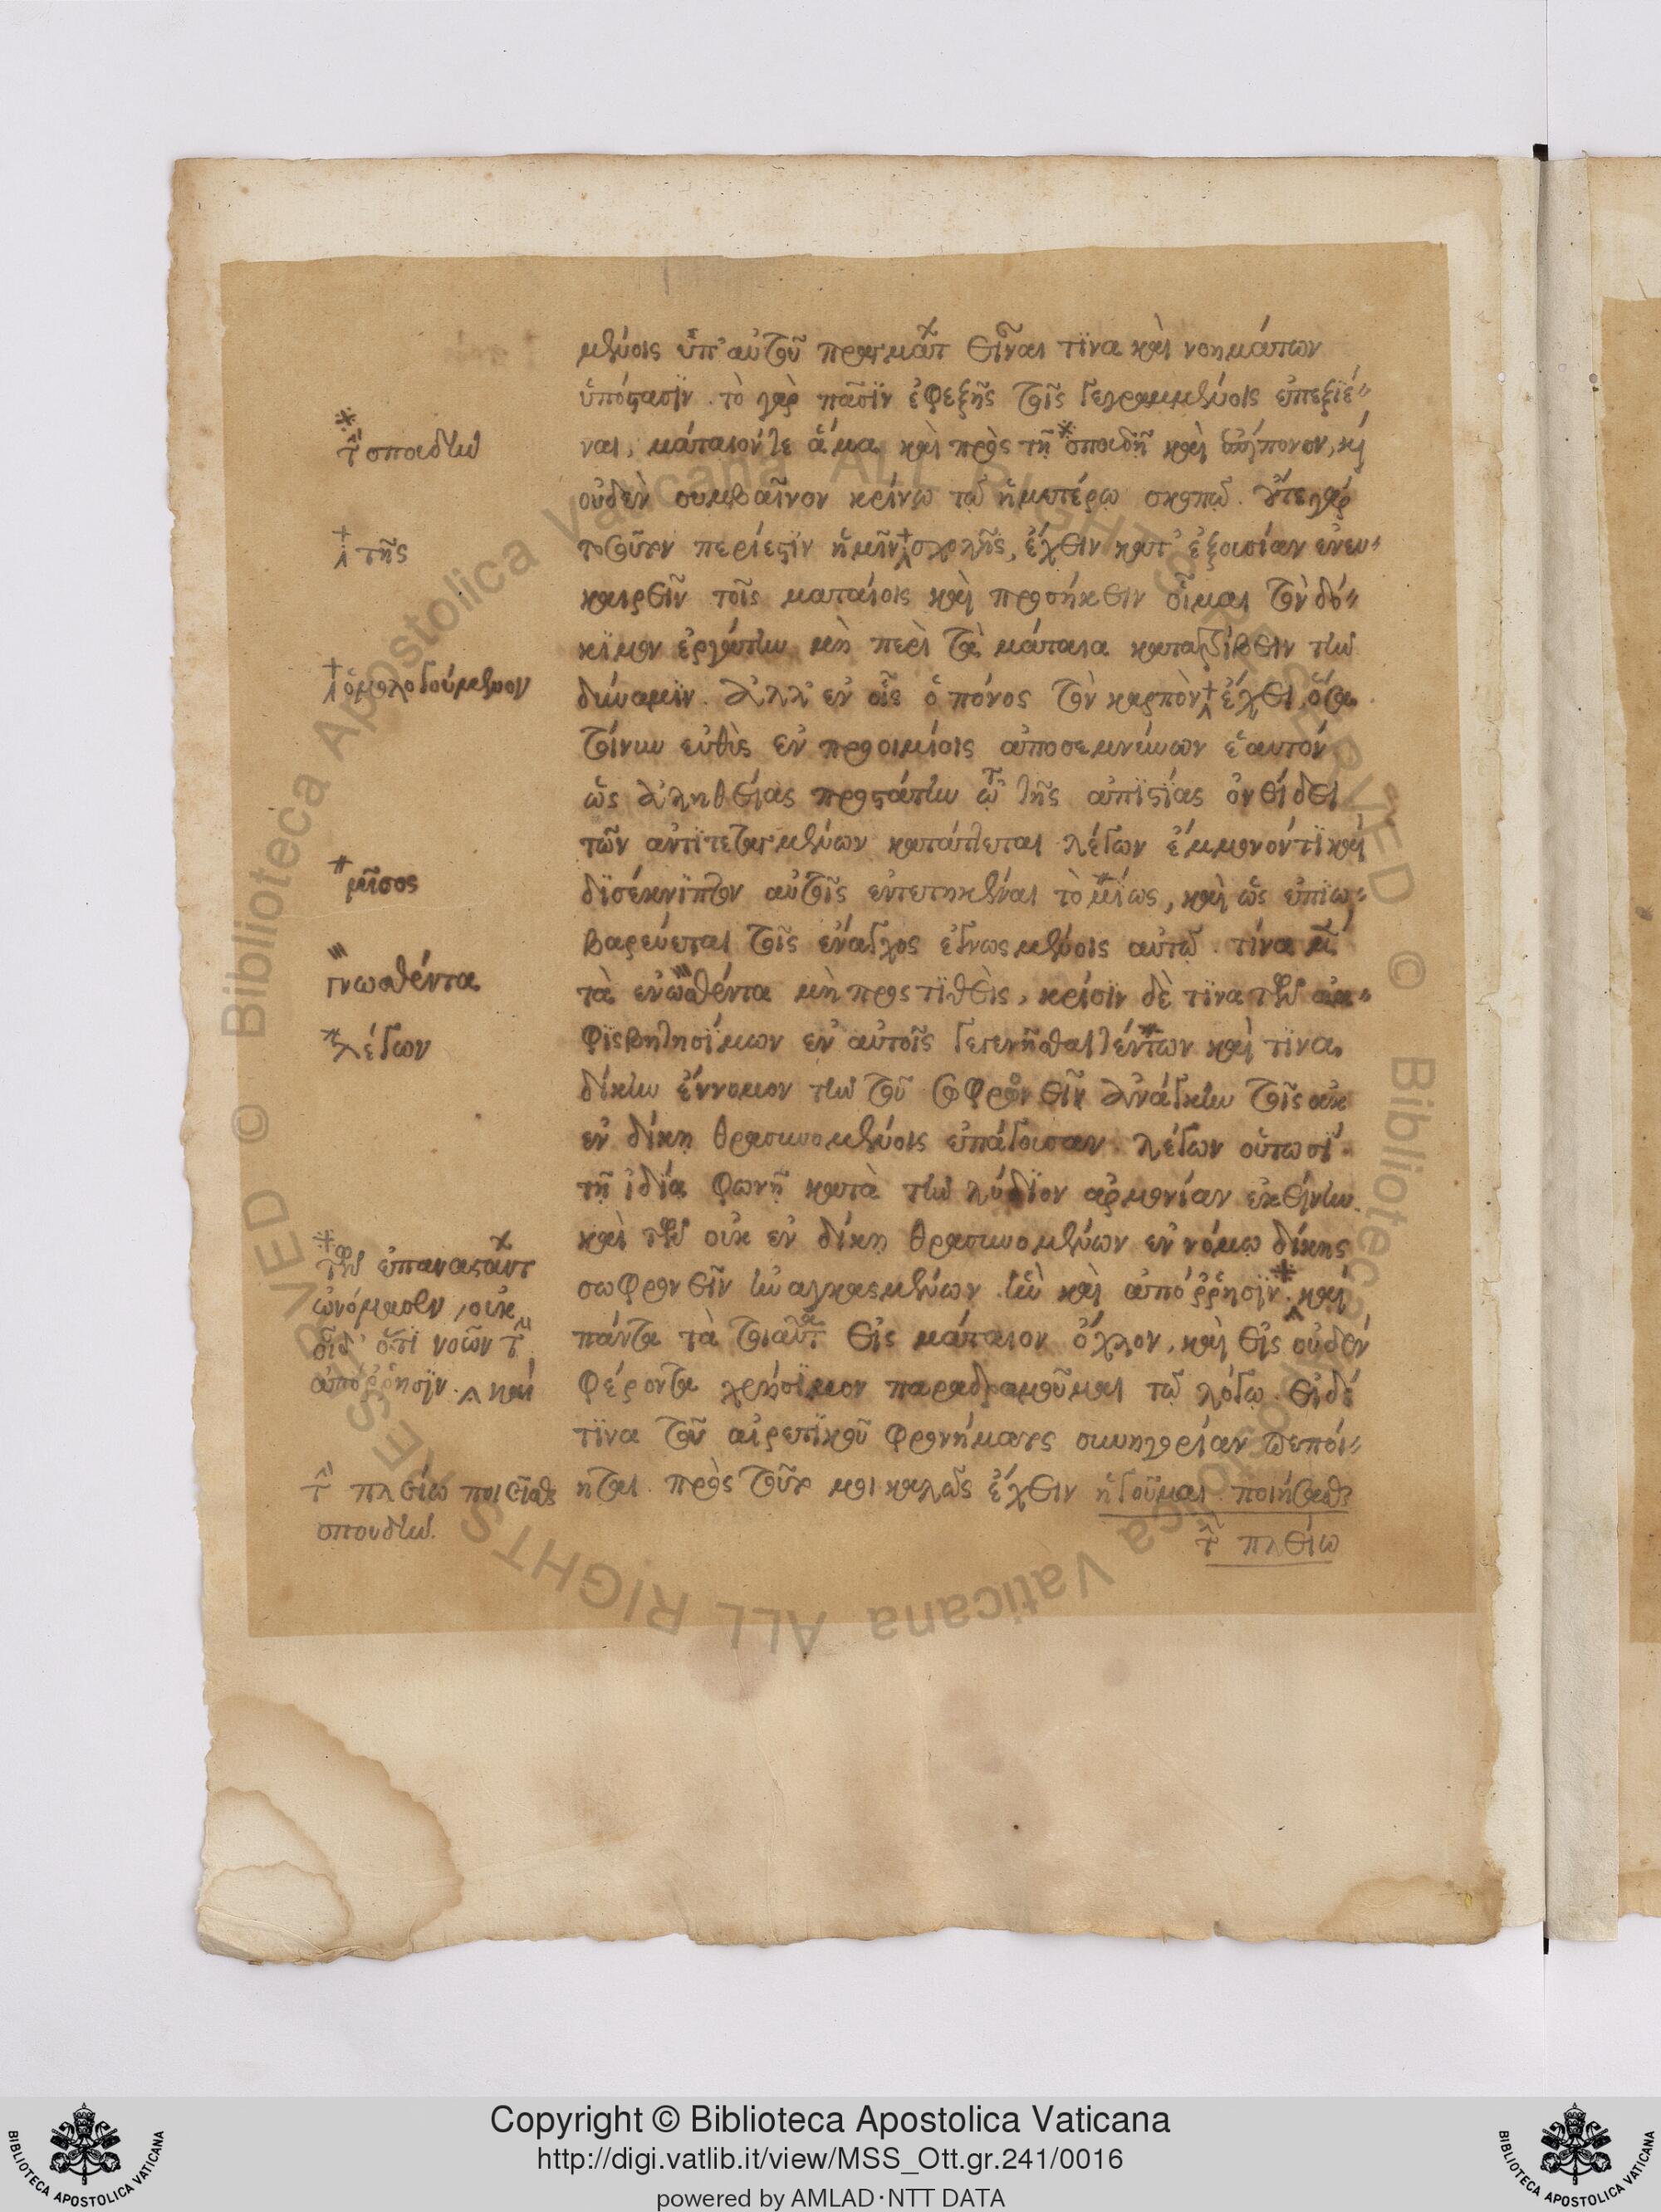 μένοις ὑπ' αὐτοῦ πραγμάτ εἶναι τινα καὶ νοημάτων
ὑπόστασιν. τὸ γὰρ πᾶσιν ἐφεξῆς τοῖς γεγραμμένοις ἐπεξιέ-
ναι, μάταιόν τε ἅμα καὶ πρὸς τῇ σπουδῇ καὶ ἐπίπονον, κ
οὐδὲν συμβαῖνον κρίνω τῷ ἡμετέρῳ σκοπῷ. οὔτε γὰρ
τοσοῦτον περίεστιν ἡμῖν σχολῆς, ἔχειν κατ' ἐξουσίαν ἐνευ-
καιρεῖν τοῖς ματαίοις καὶ προσήκειν οἶμαι τὸν δό-
κιμον ἐργάτην μὴ περὶ τὰ μάταια κατατρίβειν τὴν
δύναμιν. ἀλλ' ἐν οἷς ὁ πόνος τὸν καρπὸν ἔχει, ὅσα
τοίνυν εὐθὺς ἐν προοιμίοις ἀποσεμνύνων ἑαυτόν
ὡς ἀληθείας προστάτην τῷ τῆς ἀπιστίας ὀνείδει
τῶν ἀντιτεταγμένων καθάπτεται λέγων ἔμμονόν τι καί
δισέκνιπτον αὐτοῖς ἐντετηκέναι τὸ μίως, καὶ ὡς ἐπιω-
βαρεύεται τοῖς ἔναγχος ἐγνωσμένοις αὐτῷ. τίνα μ
τὰ ἐνωσθέντα μὴ προστιθεὶς, κρίσιν δὲ τινα τῶν ἀμ-
φισβητησίμων ἐν αὐτοῖς γεγενῆσθαι λέντων καὶ τινα
δίκην ἔννομον τὴν τοῦ σωφρονεῖν ἀνάγκην τοῖς οὐκ
ἐν δίκῃ θρασυνομένοις ἐπάγουσαν. λέγων οὑτωσί.
τῇ ἰδίᾳ φωνῇ κατὰ τὴν λύδιον ἁρμονίαν ἐκείνην
καὶ τῶν οὐκ ἐν δίκῃ θρασυνομένων ἐν νόμῳ δίκης
σωφρονεῖν ἠναγκασμένων. ἣν καὶ ἀπόρρησιν. καί
πάντα τὰ τοιαῦτα εἰς μάταιον ὄχλον, καὶ εἰς οὐδέν
φέροντα χρήσιμον παραδραμοῦμαι τῷ λόγῳ. εἰ δέ
τινα τοῦ αἱρετικοῦ φρονήματος συνηγορίαν πεποί-
ηται πρὸς τοῦτο μοι καλῶς ἔχειν ἡγοῦμαι ποιήσασθ
τ πλείω
τ σπουδὴν
τῆς
ὁμολογούμενον
μῖσος
γνωσθέντα
λέγων
τῶν ἐπαναστάντ
ὠνόμασεν, οὐκ
οἶδ' ὅτι νοῶν τ
ἀπόρρησιν. καί
τ πλείω ποιεῖσθ
σπουδὴν.
Copyright © Biblioteca Apostolica Vaticana
http://digi.vatlib.it/view/MSS_Ott.gr.241/0016
powered by AMLAD·NTT DATA
BIBLIOTECA APOSTOLICA VATICANA
BIBLIOTECA APOSTOLICA VATICANA